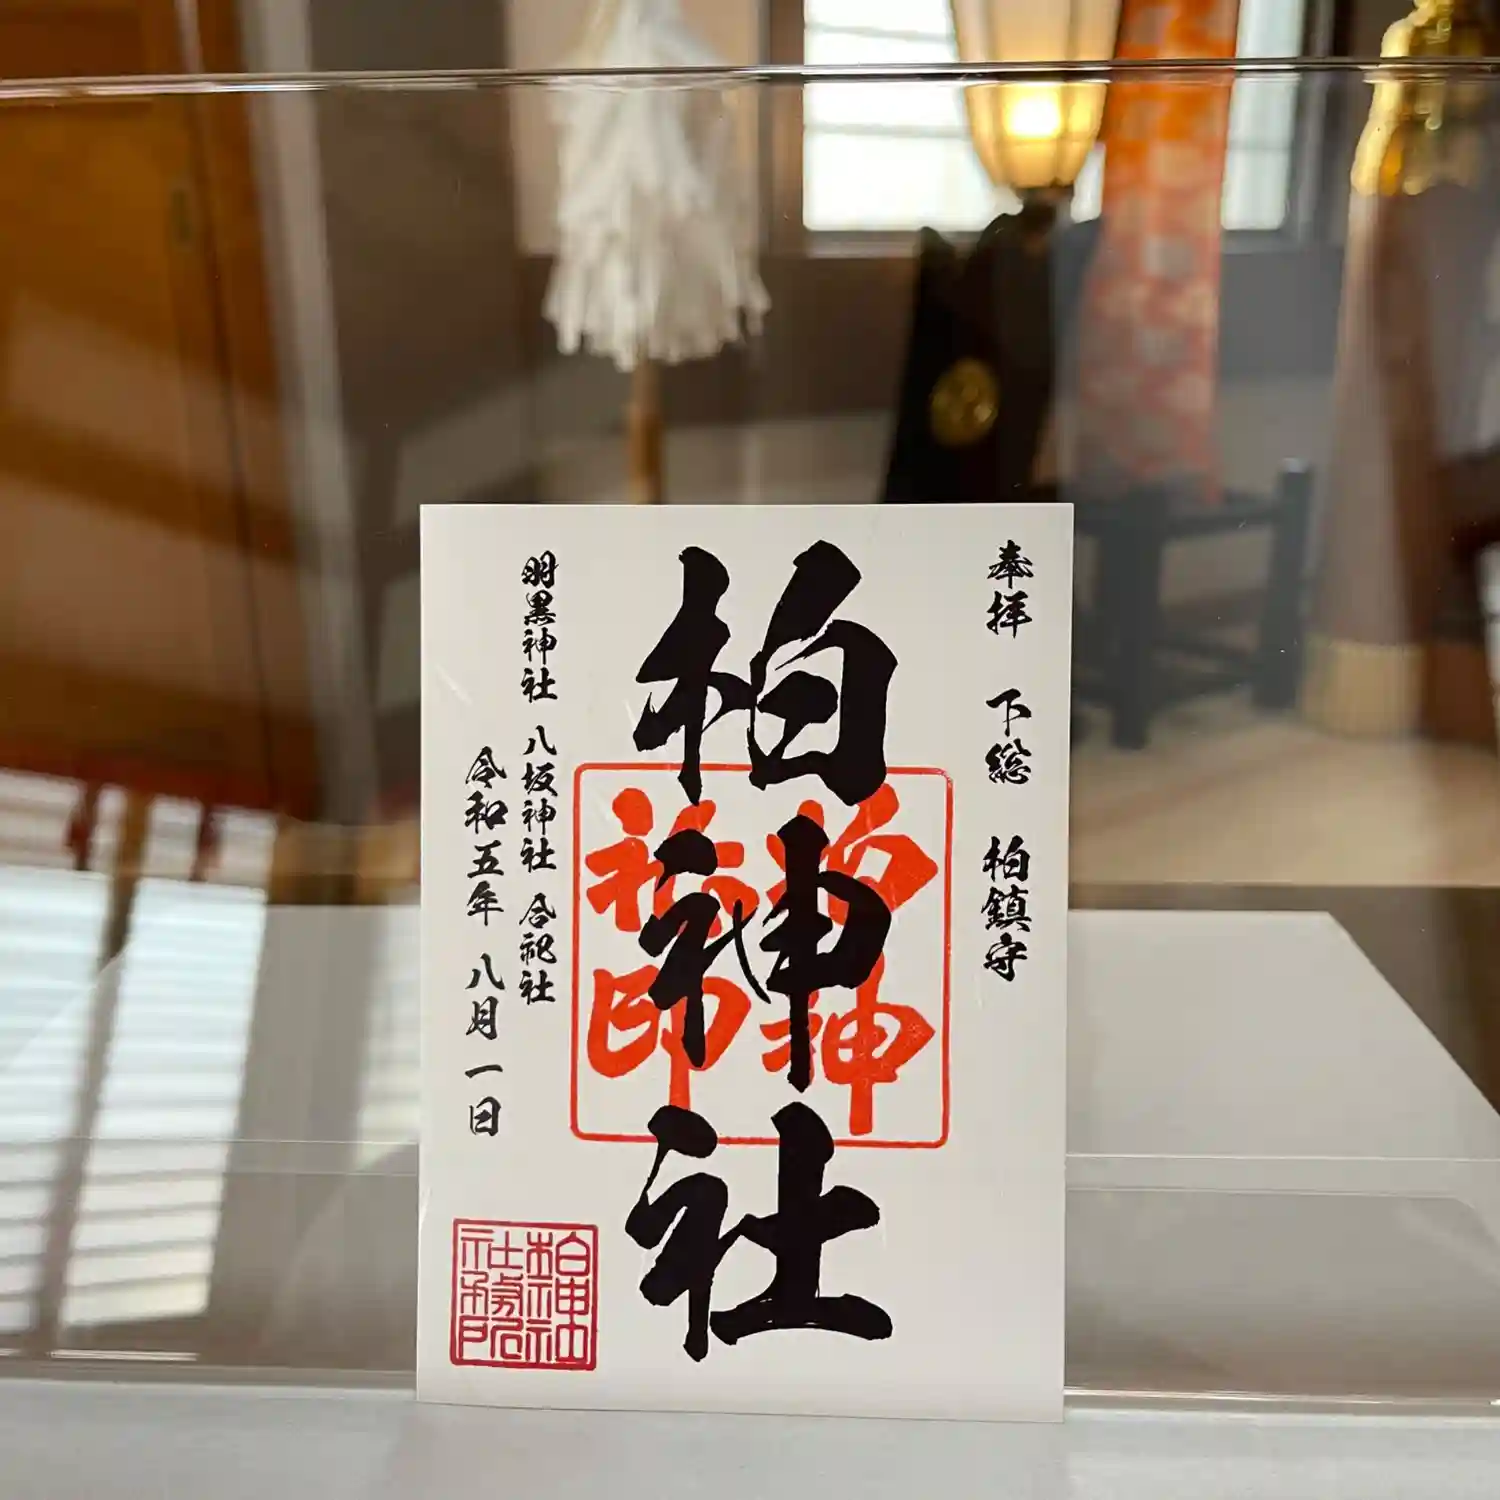 奉拝 下総 柏鎮守
柏神社
羽黒神社 八坂神社 合祀社
令和五年 八月一日
柏神社
社務所